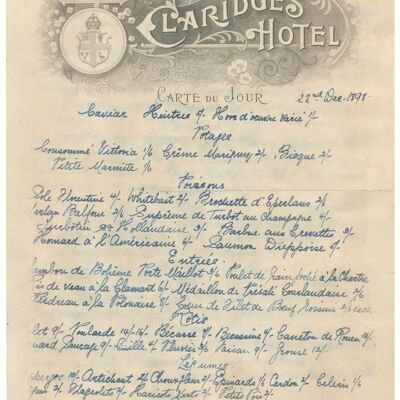 CLARIDGES
HOTEL
CARTE DU JOUR 22nd Dec. 1898.
Caviar Huitres 5/- Hors d'oeuvre Varié 1/-
Potages
Consommé Victoria 1/6 Crême Marigny 2/- Bisque 2/-
Petite Marmite 1/6
Poissons
Sole Florentine 4/- Whitebait 2/- Brochette d'Eperlans 2/6
Merlan Balfour 2/6 Suprème de Turbot au Champagne 4/-
Turbotin Hollandaise 3/- Barbue aux Crevettes
Homard à l'Américaine 4/- Saumon Dieppoise 5/-
Entrées
Jambon de Bohême Porte Maillot 3/6 Poulet de grain poêlé à la Chartres
Ris de veau à la Clamart 6/- Médaillon de Présalé Courlandaise 3/6
Perdreau à la Polonaise 9/- Coeur de Filet de Boeuf Rossini each
Rôtis
9/- Poularde 10/-14/- Bécasse 7/- Bécassine 4/- Caneton de Rouen 18/-
Sauvage 9/- Caille 4/- Pluvier 3/6 Faisan 9/- Grouse 12/-
Légumes
10/- Artichaut 2/- Choux fleur 2/- Epinards 1/6 Cardon 2/- Céleris 1/6
Flageolets 2/- Haricots Verts 2/- Petits Pois 2/-